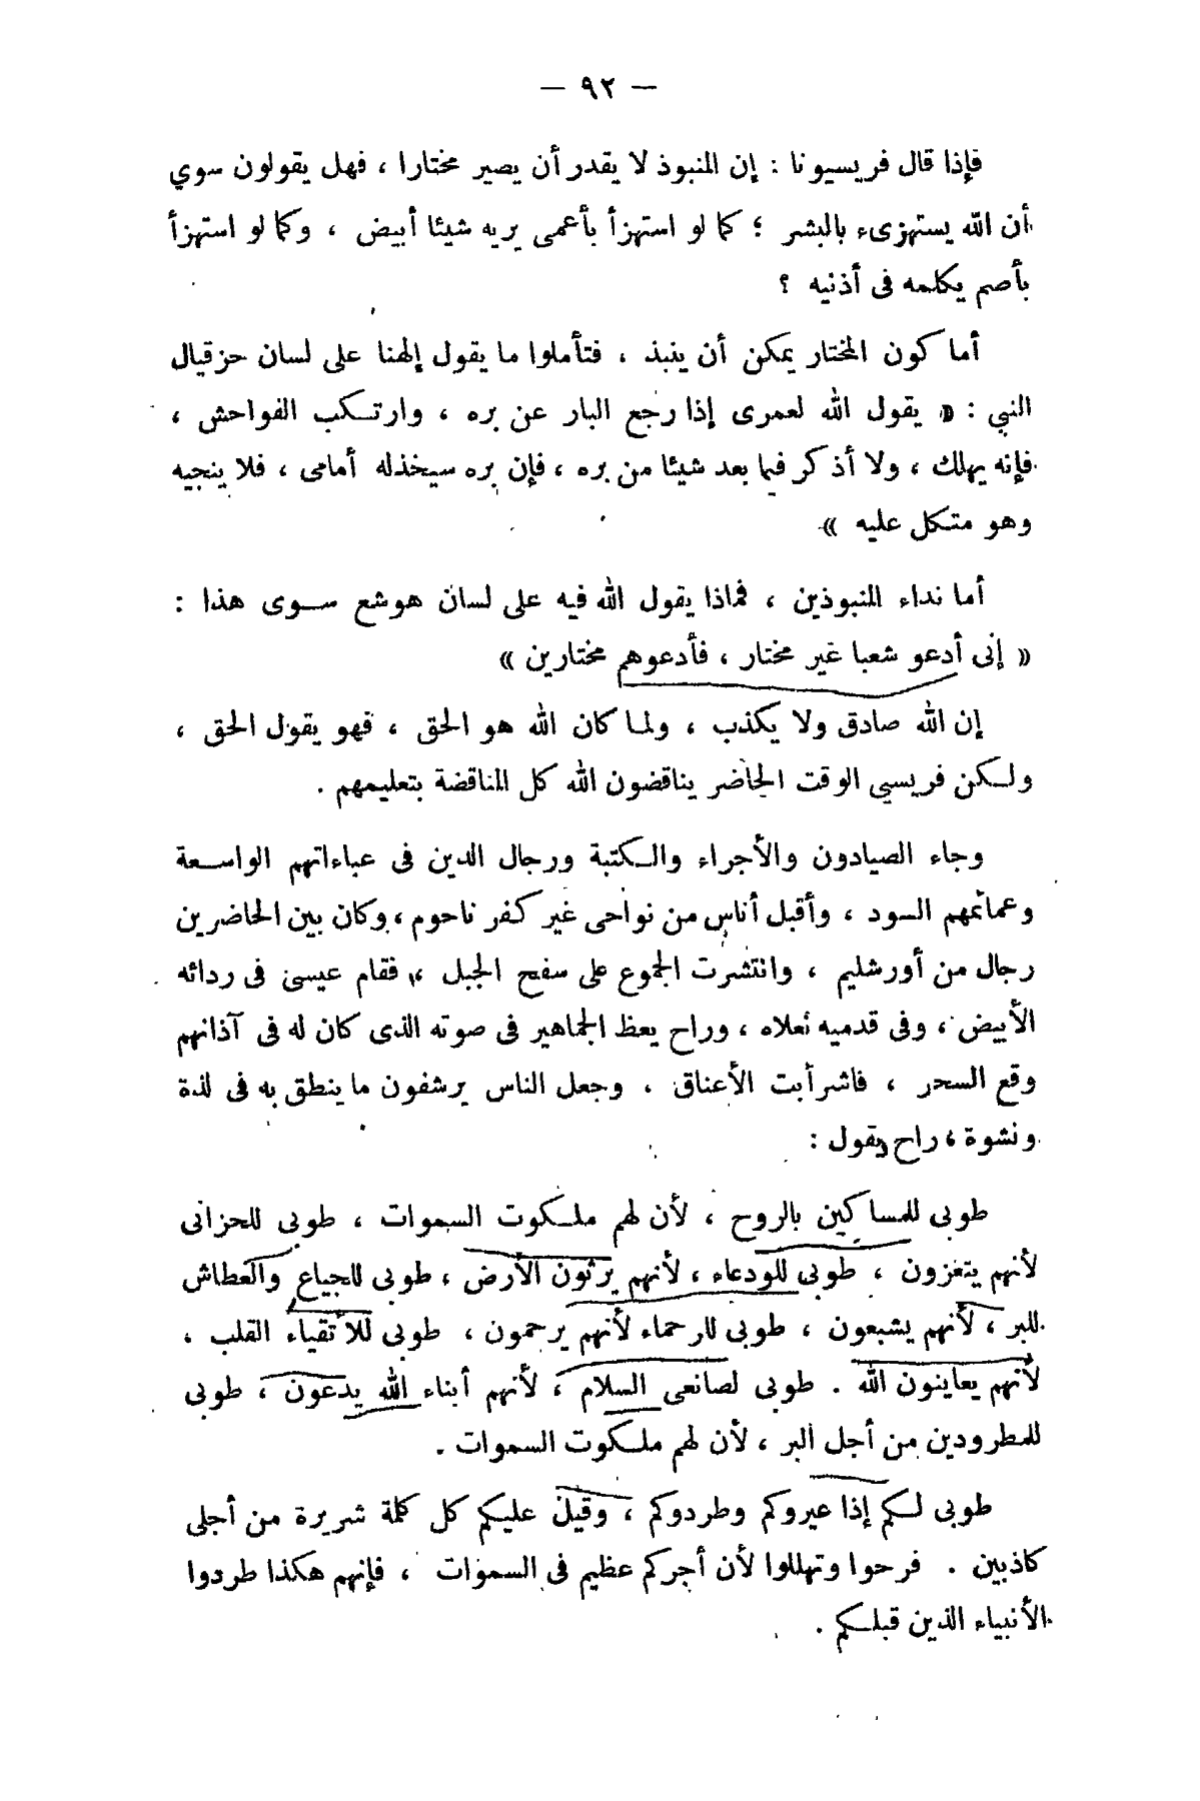 — ٩٢ —
فإذا قال فريسيونا : إن المنبوذ لا يقدر أن يصير مختارا ، فهل يقولون سوي
أن الله يستهزىء بالبشر ؛ كما لو استهزأ بأعمى يريه شيئا أبيض ، وكما لو استهزأ
بأصم يكلمه فى أذنيه ؟
أما كون المختار يمكن أن ينبذ ، فتأملوا ما يقول إلهنا على لسان حزقيال
النبي : « يقول الله لعمرى إذا رجع البار عن بره ، وارتكب الفواحش ،
فإنه يهلك ، ولا أذكر فيما بعد شيئا من بره ، فإن بره سيخذله أمامى ، فلا ينجيه
وهو متكل عليه »
أما نداء المنبوذين ، فماذا يقول الله فيه على لسان هوشع سوى هذا :
« إنى أدعو شعبا غير مختار ، فأدعوهم مختارين »
إن الله صادق ولا يكذب ، ولما كان الله هو الحق ، فهو يقول الحق ،
ولكن فريسيي الوقت الحاضر يناقضون الله كل المناقضة بتعليمهم .
وجاء الصيادون والأجراء والكتبة ورجال الدين فى عباءاتهم الواسعة
وعمائمهم السود ، وأقبل أناس من نواحى غير كفر ناحوم ، وكان بين الحاضرين
رجال من أورشليم ، وانتشرت الجموع على سفح الجبل ، فقام عيسى فى ردائه
الأبيض ، وفى قدميه نعلاه ، وراح يعظ الجماهير فى صوته الذى كان له فى آذانهم
وقع السحر ، فاشرأبت الأعناق ، وجعل الناس يرشفون ما ينطق به فى لذة
ونشوة ، راح يقول :
طوبى للمساكين بالروح ، لأن لهم ملكوت السموات ، طوبى للحزانى
لأنهم يتعزون ، طوبى للودعاء ، لأنهم يرثون الأرض ، طوبى للجياع والعطاش
للبر ، لأنهم يشبعون ، طوبى للرحماء لأنهم يرحمون ، طوبى للأتقياء القلب ،
لأنهم يعاينون الله . طوبى لصانعى السلام ، لأنهم أبناء الله يدعون ، طوبى
للمطرودين من أجل البر ، لأن لهم ملكوت السموات .
طوبى لكم إذا عيروكم وطردوكم ، وقيل عليكم كل كلمة شريرة من أجلى
كاذبين . فرحوا وتهللوا لأن أجركم عظيم فى السموات ، فإنهم هكذا طردوا
الأنبياء الذين قبلكم .